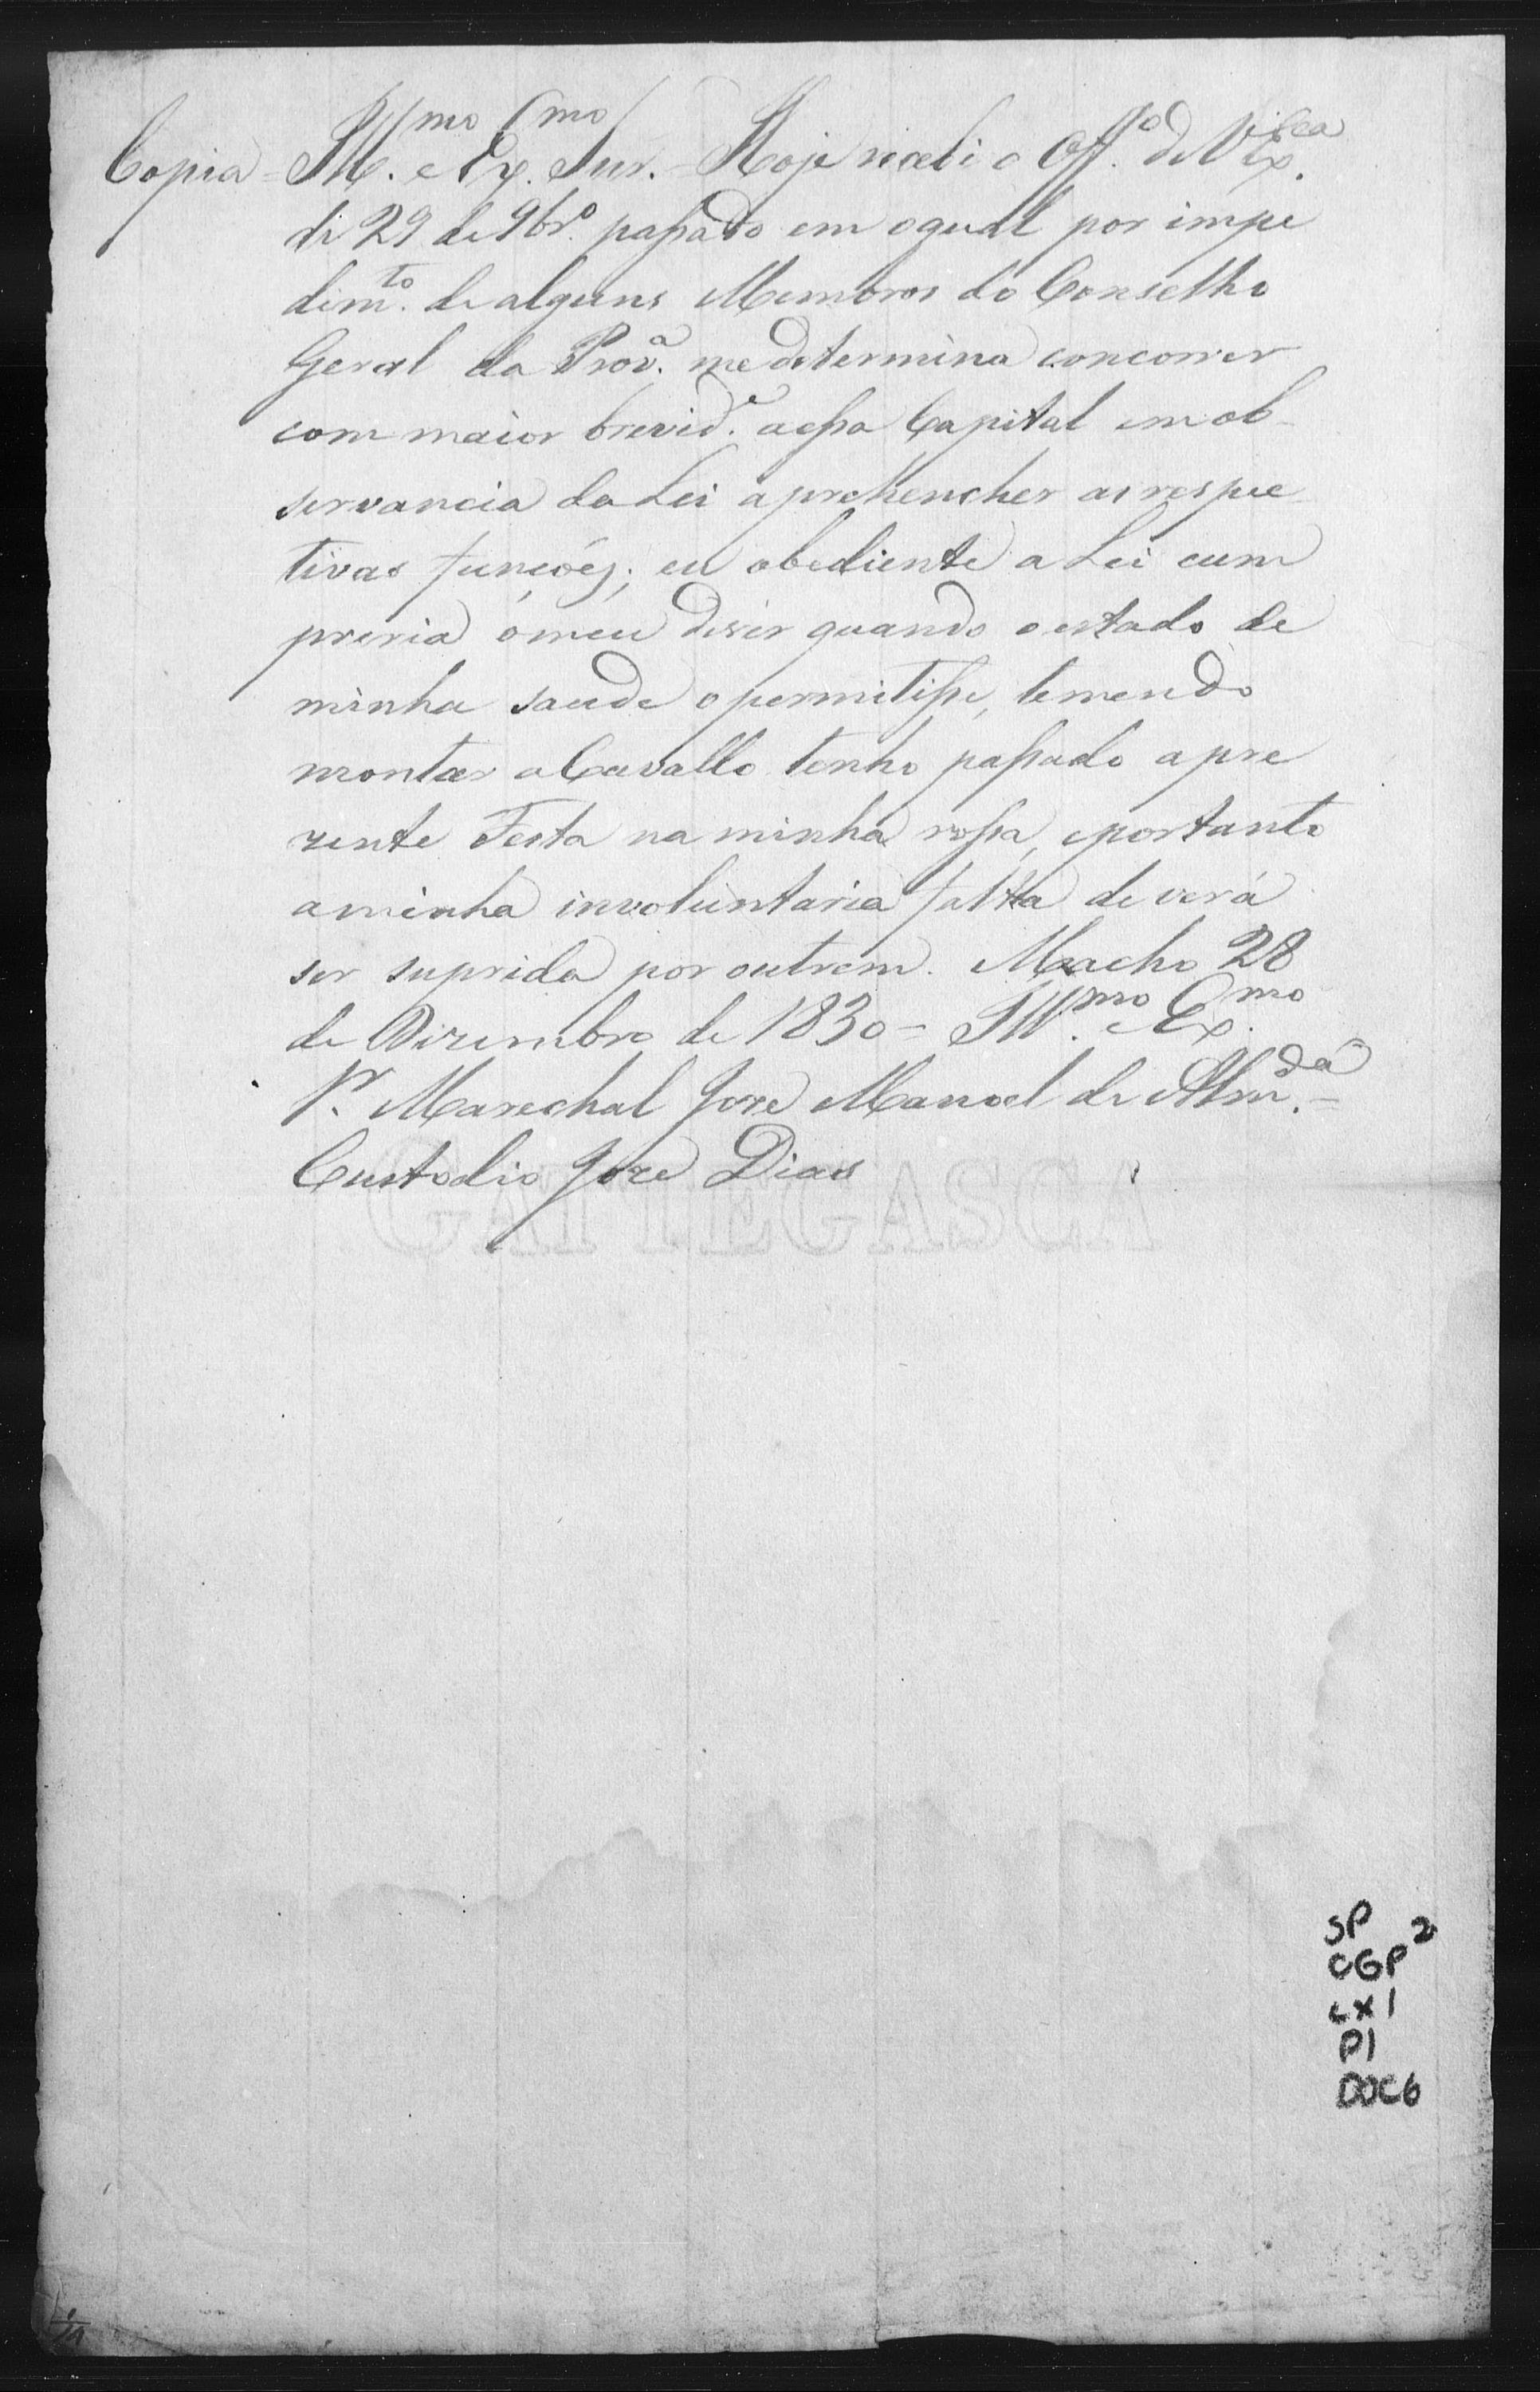 Copia = Ill.mo e Ex.mo Snr. - Hoje recebi o Off.o de V Ex.cia
de 29 de 9br.o passado em o qual por impe
dim.to de alguns Membros do Conselho
Geral da Prov.a me determina concorrer
com maior brevid.e a essa Capital em ob-
servancia da Lei a prehencher as respec
tivas funcoẽs; eu obediente a Lei cum
preria o meu dever quando o estado de
minha saude o permitisse, temendo
montar a Cavallo tenho passado a pre
zente Festa na minha rossa, e portanto
a minha involuntaria falta deverá
ser suprida por outrem. Macho 28
de Dizembro de 1830 = Ill.mo e Ex.mo
Sr. Marechal Joze Manoel de Alm.da =
Custodio Joze Dias
GATTEGASCA
SP
CGP 2
CX1
P1
DOC6